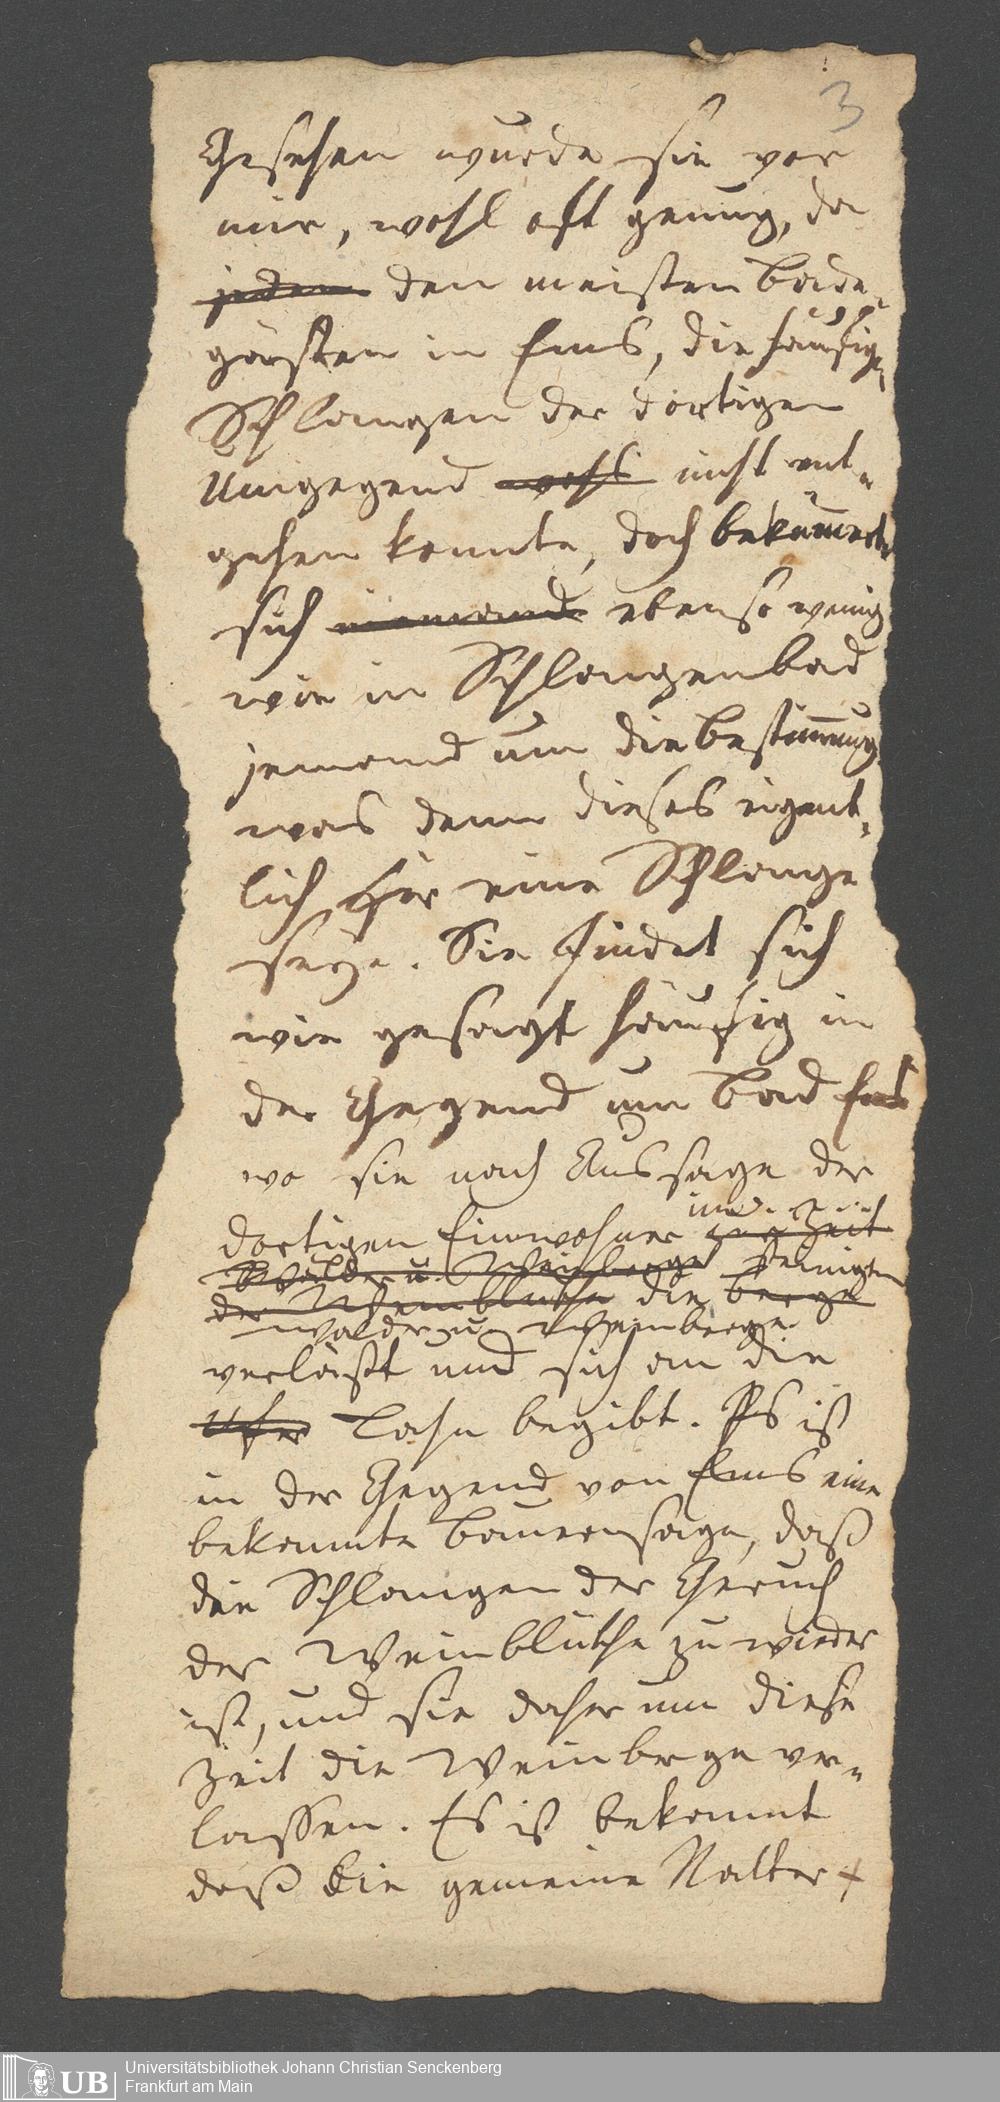 3
Gesehen wurde sie vor
mir, wohl oft genung, da
jedem den meisten Bade-
gästen in Ems, die häufigen
Schlangen der dortigen
Umgegend wohl nicht ent-
gehen konnte, doch bekümerte
sich niemand ebenso wenig
wie in Schlangenbad
jemand um die Bestimmung
was denn dieses eigent-
lich für eine Schlange
seye. Sie findet sich
wie gesagt häufig in
der Gegend um Bad Ems
wo sie nach Aussage der
dortigen Einwohner zur Zeit
Wälder u. Weinberge steinigten
der Weinblüthe die Berge
Wälder u Weinberge
verläßt und sich an die
Ufer Lahn begibt. Es ist
in der Gegend von Ems eine
bekannte Bauernsage, daß
die Schlangen der Geruch
der Weinblüthe zu wieder
ist, und sie daher um diese
Zeit die Weinberge ver-
lassen. Es ist bekannt
daß die gemeine Natter +
UB
Universitätsbibliothek Johann Christian Senckenberg
Frankfurt am Main